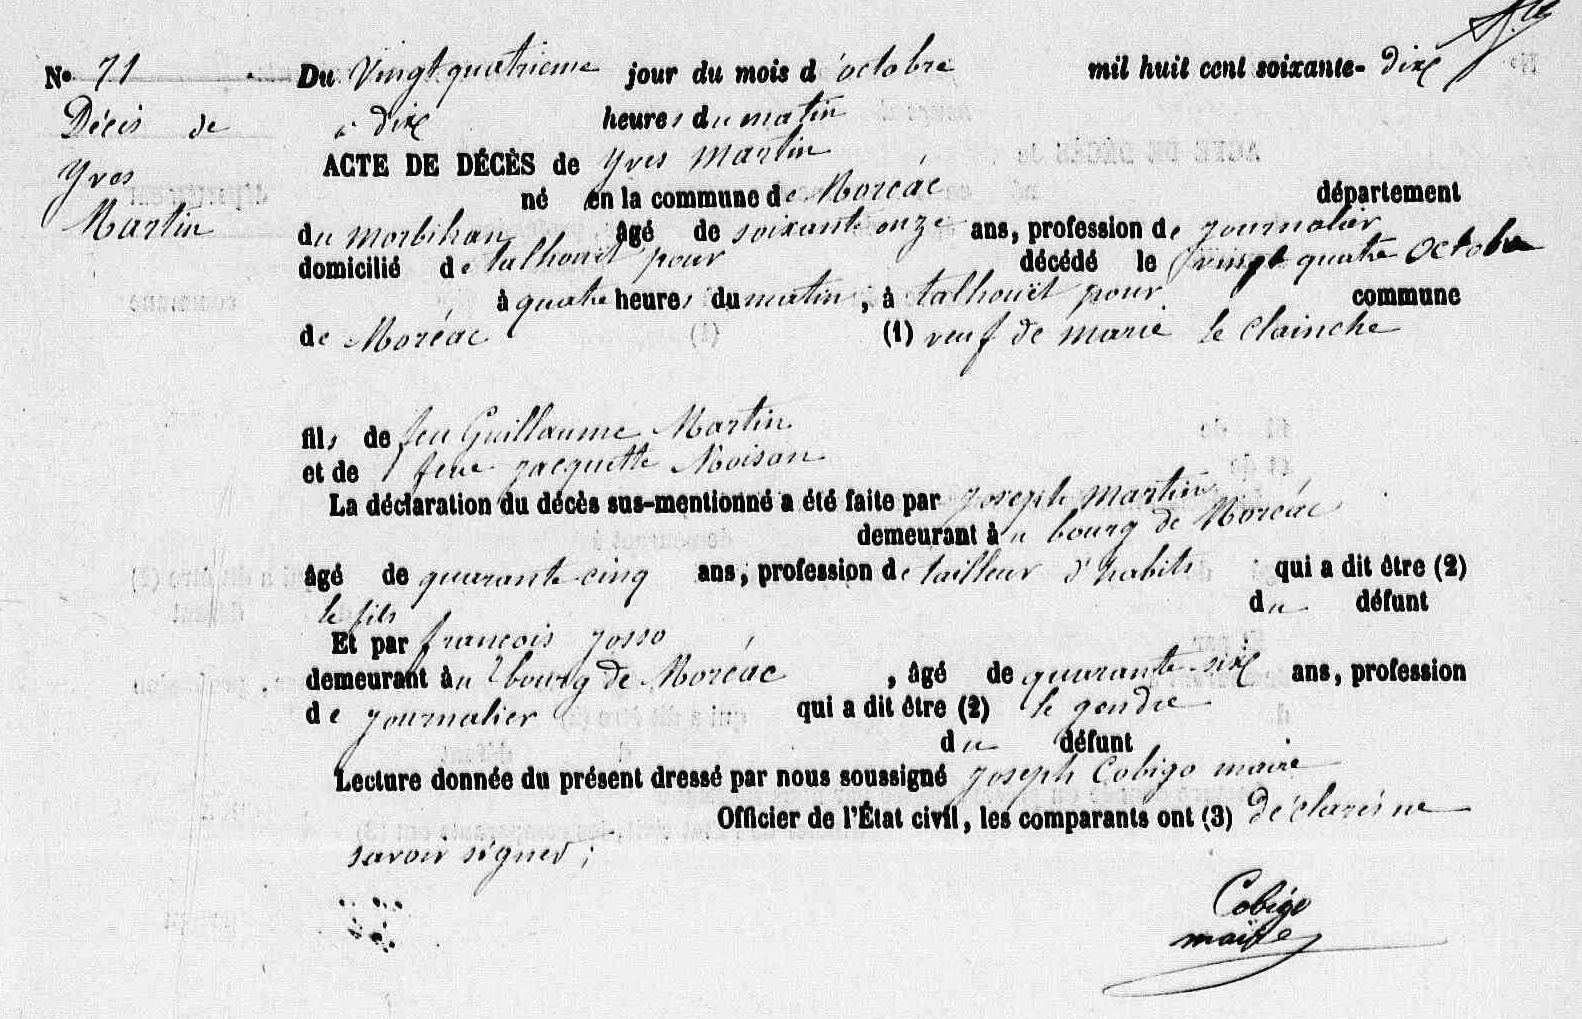 N° 71
Décès de
Yves
Martin
Du vingt quatrieme jour du mois d'octobre mil huit cent soixante-dix
à dix heures du matin
ACTE DE DÉCÈS de yves martin
né en la commune de Moréac département
du morbihan âgé de soixante onze ans, profession de journalier
domicilié de talhouët pour décédé le vingt quatre octobre
à quatre heures du matin, à talhouët pour commune
de Moréac (1) veuf de marie le clainche
fils de feu Guillaume Martin
et de feue jacquette Moisan
La déclaration du décès sus-mentionné a été faite par joseph martin
demeurant à u bourg de Moréac
âgé de quarante cinq ans, profession de tailleur d'habits qui a dit être (2)
le fils du défunt
Et par françois josso
demeurant au bourg de Moréac, âgé de quarante-six ans, profession
de journalier qui a dit être (2) le gendre
du défunt
Lecture donnée du présent dressé par nous soussigné joseph Cobigo maire
Officier de l'État civil, les comparants ont (3) déclarés ne
savoir signer;
Cobigo
maire